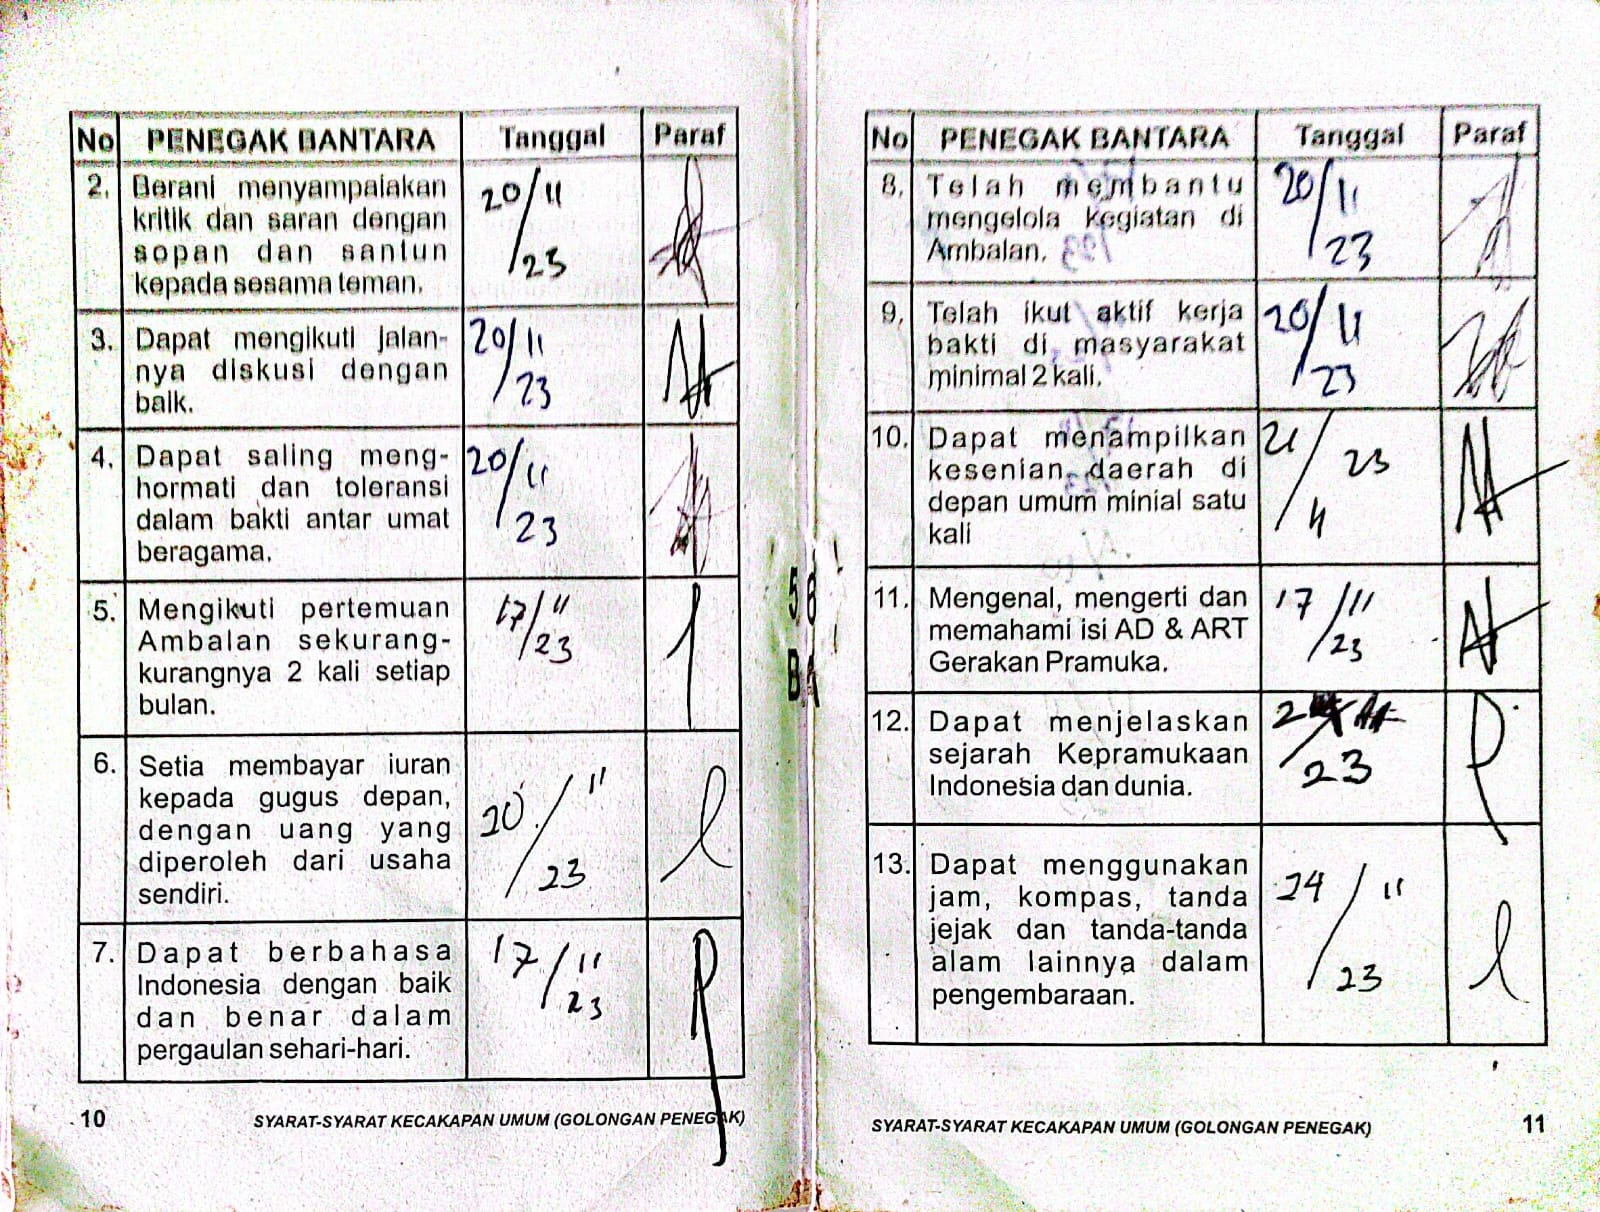 No PENEGAK BANTARA Tanggal Paraf
2. Berani menyampaiakan 20/11
kritik dan saran dengan
sopan dan santun 23
kepada sesama teman.
3. Dapat mengikuti jalan- 20/11
nya diskusi dengan 23
baik.
4. Dapat saling meng- 20/11
hormati dan toleransi
dalam bakti antar umat 23
beragama.
5. Mengikuti pertemuan 17/11
Ambalan sekurang- 23
kurangnya 2 kali setiap
bulan.
6. Setia membayar iuran 11
kepada gugus depan, 20/
dengan uang yang
diperoleh dari usaha 23
sendiri.
7. Dapat berbahasa 17/11
Indonesia dengan baik 23
dan benar dalam
pergaulan sehari-hari.
10 SYARAT-SYARAT KECAKAPAN UMUM (GOLONGAN PENEGAK)
56
BA
No PENEGAK BANTARA Tanggal Paraf
8. Telah membantu 20/11
mengelola kegiatan di
Ambalan. 23
9. Telah ikut aktif kerja 20/11
bakti di masyarakat
minimal 2 kali. 23
10. Dapat menampilkan
kesenian daerah di 23
depan umum minial satu
kali
11. Mengenal, mengerti dan 17/11
memahami isi AD & ART 23
Gerakan Pramuka.
12. Dapat menjelaskan
sejarah Kepramukaan 23
Indonesia dan dunia.
13. Dapat menggunakan 24/11
jam, kompas, tanda
jejak dan tanda-tanda
alam lainnya dalam 23
pengembaraan.
SYARAT-SYARAT KECAKAPAN UMUM (GOLONGAN PENEGAK) 11